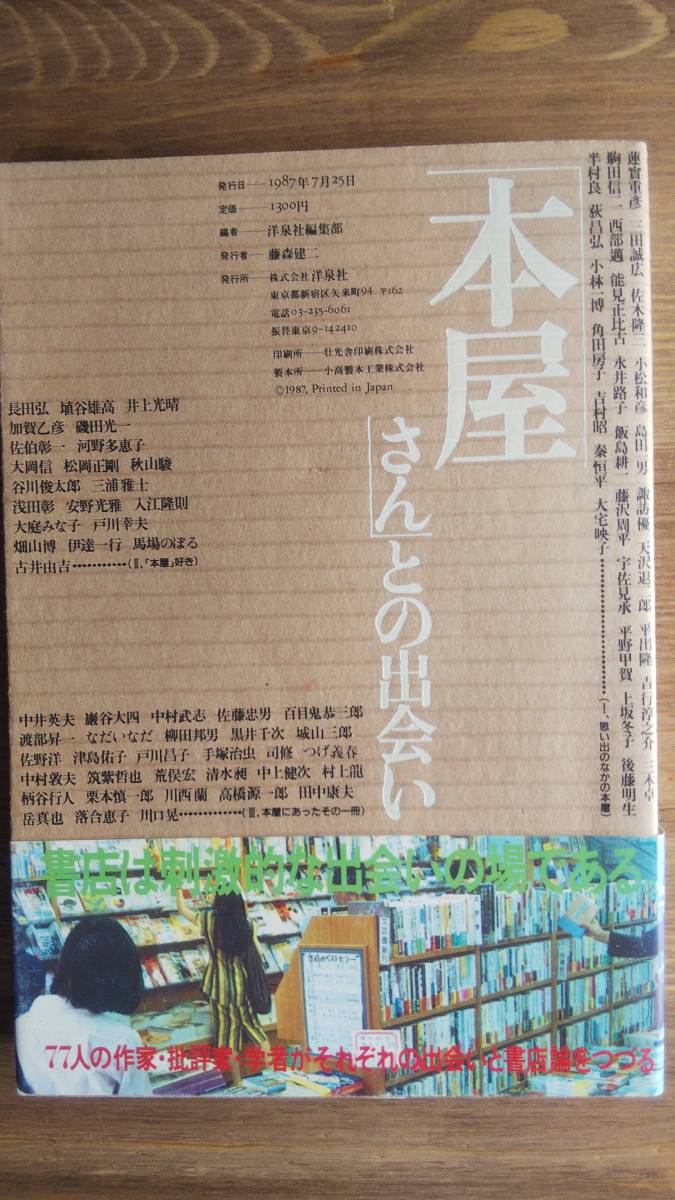 「本屋
さん」との出会い
蓮實重彦 三田誠広 佐木隆三 小松和彦 島田一男 諏訪優 天沢退二郎 平出隆 吉行淳之介 三木卓
駒田信二 西部邁 能見正比古 永井路子 飯島耕一 藤沢周平 宇佐見承 平野甲賀 上坂冬子 後藤明生
半村良 荻昌弘 小林一博 角田房子 吉村昭 秦恒平 大宅映子…………(Ⅰ、思い出のなかの本屋)
発行日──1987年7月25日
定価──1300円
編者──洋泉社編集部
発行者──藤森建二
発行所──株式会社洋泉社
東京都新宿区矢来町94 〒162
電話03-235-6061
振替東京9-142410
印刷所──壮光舎印刷株式会社
製本所──小高製本工業株式会社
©1987, Printed in Japan
長田弘 埴谷雄高 井上光晴
加賀乙彦 磯田光一
佐伯彰一 河野多惠子
大岡信 松岡正剛 秋山駿
谷川俊太郎 三浦雅士
浅田彰 安野光雅 入江隆則
大庭みな子 戸川幸夫
畑山博 伊達一行 馬場のぼる
古井由吉…………(Ⅱ、「本屋」好き)
中井英夫 巖谷大四 中村武志 佐藤忠男 百目鬼恭三郎
渡部昇一 なだいなだ 柳田邦男 黒井千次 城山三郎
佐野洋 津島佑子 戸川昌子 手塚治虫 司修 つげ義春
中村敦夫 筑紫哲也 荒俣宏 清水昶 中上健次 村上龍
柄谷行人 栗本慎一郎 川西蘭 高橋源一郎 田中康夫
岳真也 落合恵子 川口晃…………(Ⅲ、本屋にあったその一冊)
書店は刺激的な出会いの場である
77人の作家・批評家・学者がそれぞれの出会いと書店論をつづる